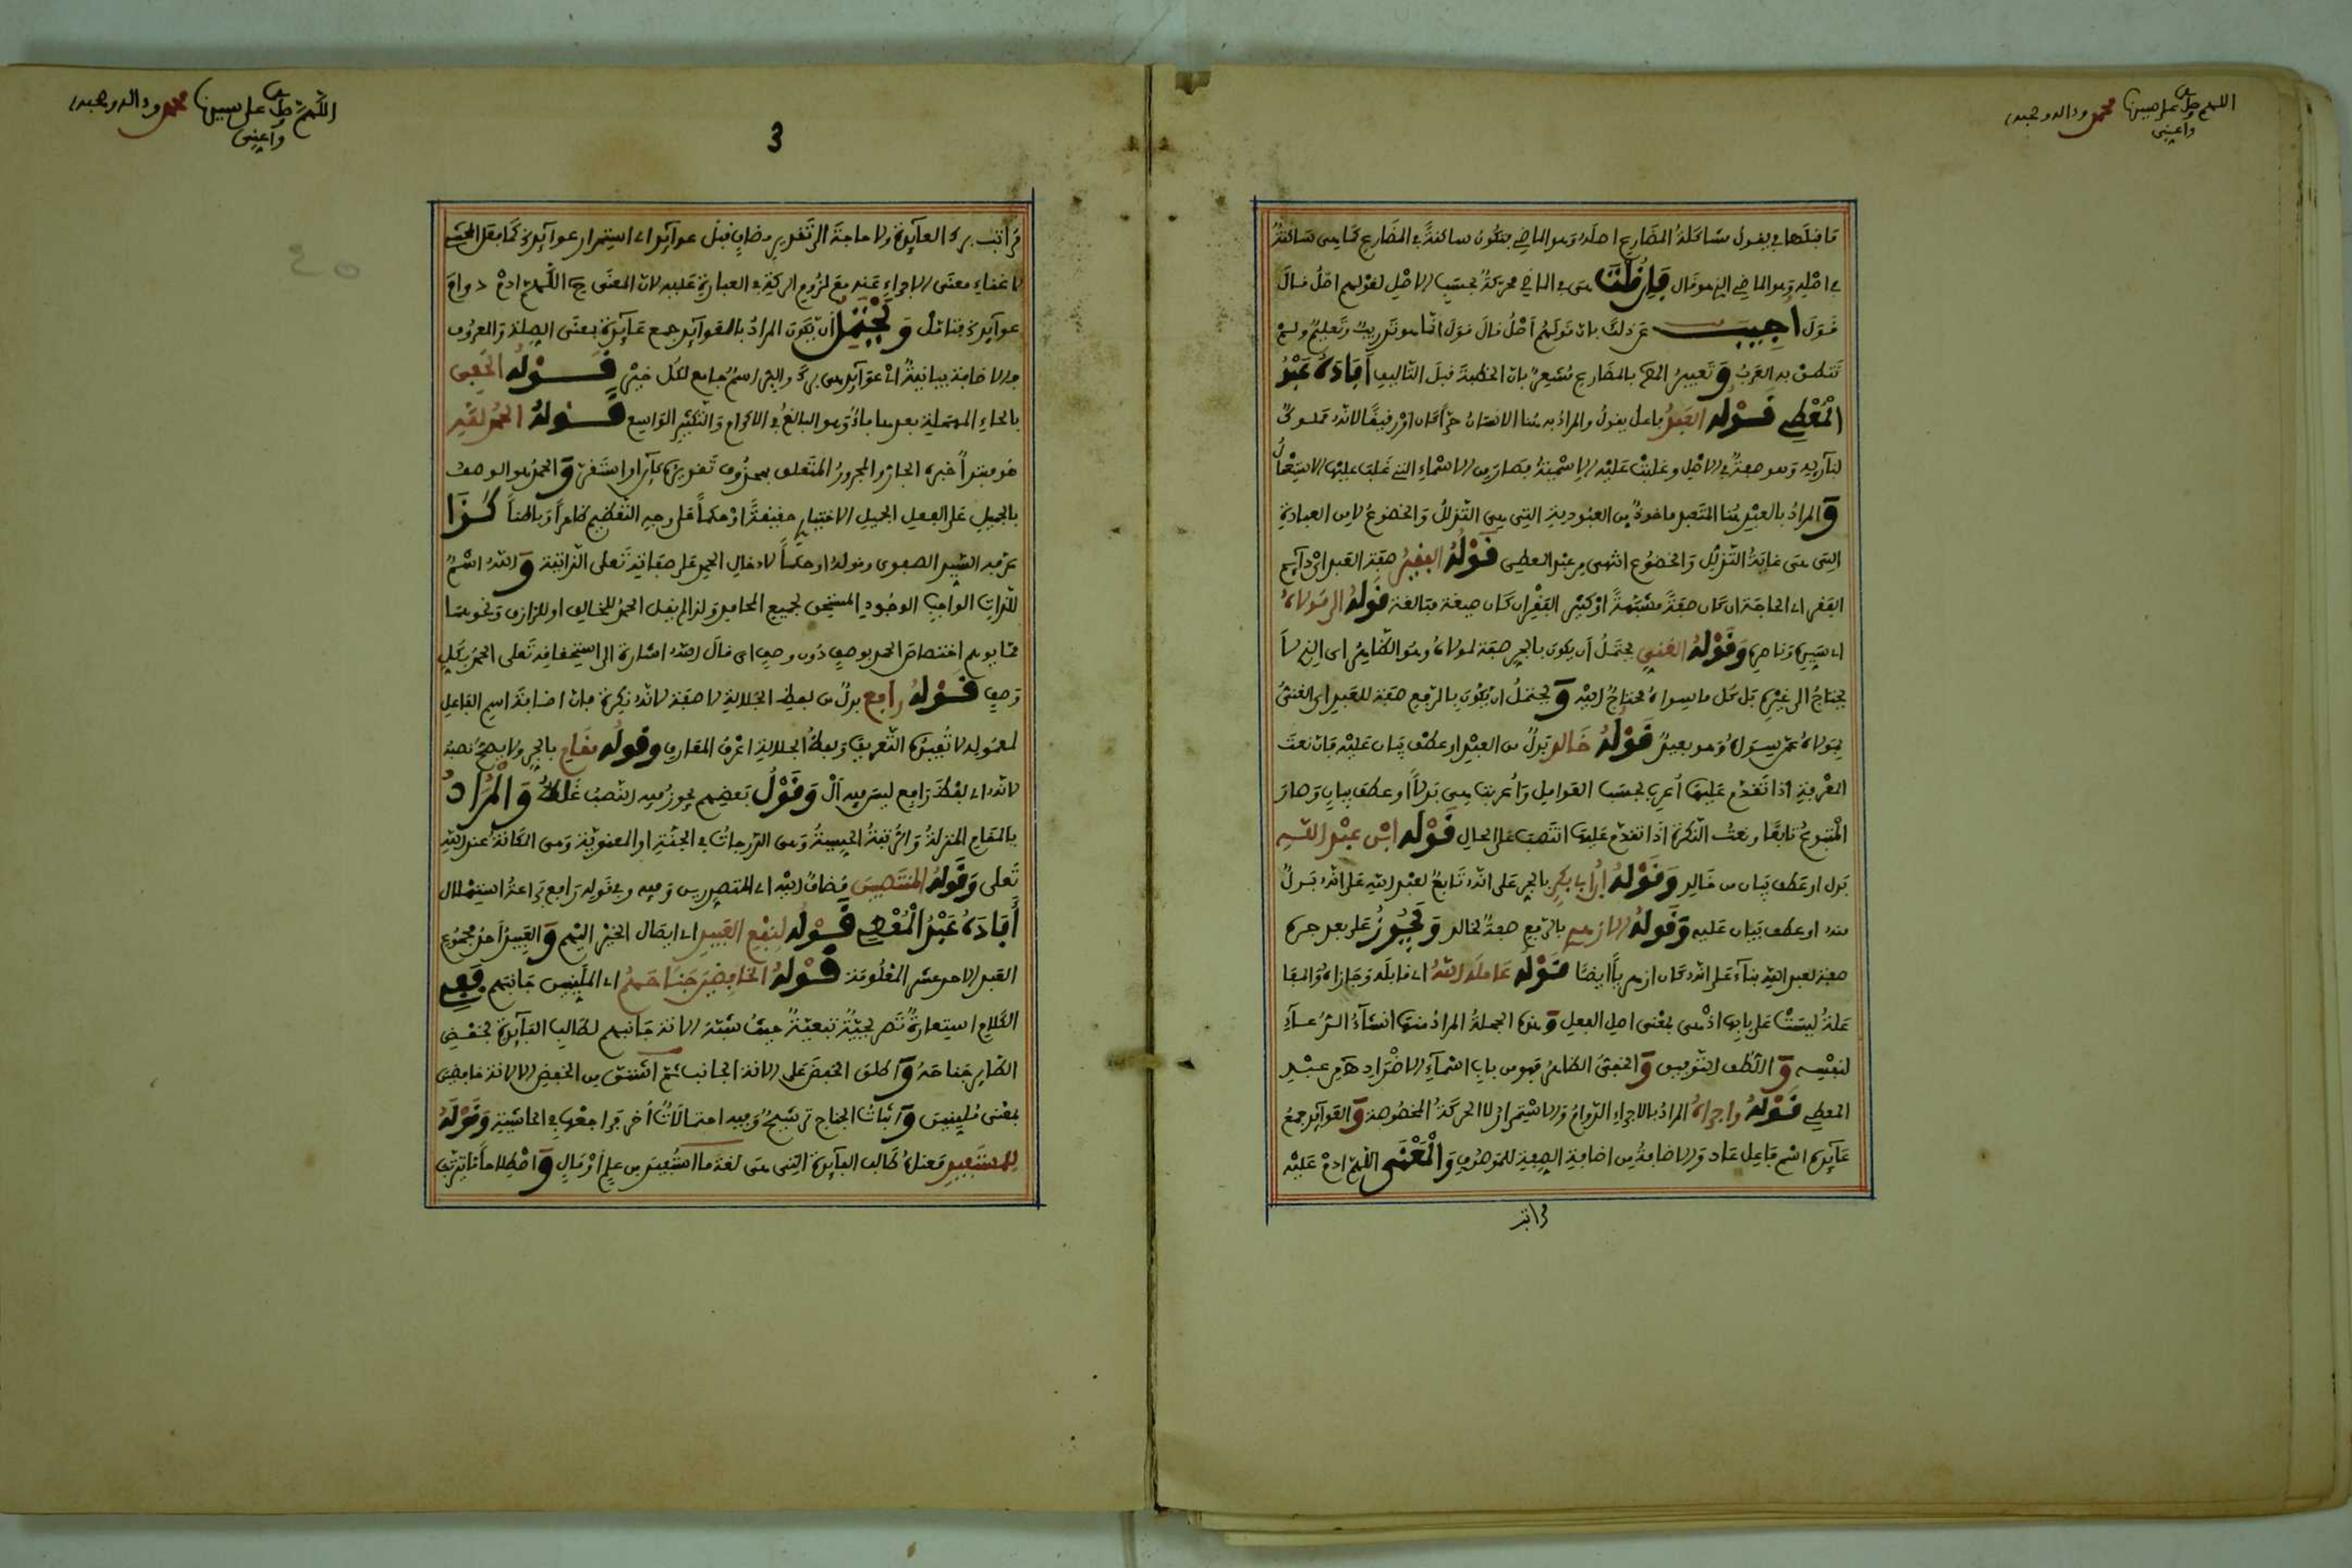 اللهم صل على سيدنا محمد وءاله وصحبه
وأعني
ما قبلها في يقول مشاكلة المضارع اصله وهو الماضي بتكون ساكنة في المضارع كما هي ساكنة
في اصله وهو الماضي الذي هو قال فإن قلنا هي في الماضي محركة بحسب الاصل لقولهم اصل قال
قول أجيب عن ذلك بان قولهم أصل قال قول انما هو تدريب وتعليم ولم
تنطق به العرب وتعبيره بالمضارع مشعر بان الخطبة قبل التاليف أفاده عبد
المعطي قوله العبد فاعل يقول والمراد به هنا الانسان حرا كان او رقيقا لانه مملوك
لباريه وهو صفة في الاصل وغلبت عليه الاسمية فصار من الاسماء التي غلب عليها الاستعمال
والمراد بالعبد هنا المتعبد ماخوذ من العبودية التي هي التذلل والخضوع لا من العبادة
التي هي غاية التذلل والخضوع انتهى من عبد المعطي قوله الفقير صفة العبد اي دائم
الفقر اي الحاجة ان كان صفة مشبهة او كثير الفقر ان كان صيغة مبالغة قوله الى مولاه
اي سيده وناصره وقوله الغني يحتمل أن يكون بالجر صفة لمولاه وهو الظاهر اي الذي لا
يحتاج الى غيره بل كل ما سواه محتاج اليه ويحتمل ان يكون بالرفع صفة للعبد اي الغني
بمولاه عمن سواه وهو بعيد قوله خالد بدل من العبد او عطف بيان عليه فان نعت
المعرفة اذا تقدم عليها أعرب بحسب العوامل وأعربت هي بدلا او عطف بيان وصار
المتبوع تابعا ونعت النكرة اذا تقدم عليها انتصب على الحال قوله ابن عبد الله
بدل او عطف بيان من خالد وقوله ابن أبي بكر بالجر على انه تابع لعبد الله على انه بدل
منه او عطف بيان عليه وقوله الازهري بالرفع صفة لخالد ويجوز على بعد جره
صفة لعبد الله بناء على انه كان ازهريا ايضا قوله عامله الله اي قابله وجازاه والمفا
علة ليست على بابها اذ هي بمعنى اصل الفعل وهذه الجملة المراد منها انشاء الدعاء
لنفسه واللطف التوفيق والخفي الظاهر فهو من باب اسماء الاضداد من عبد
المعطي قوله واجراه المراد بالاجراء الدوام والاستمرار لا الحركة المخصوصة والعوايد جمع
عايدة اسم فاعل عاد والاضافة من اضافة الصفة للموصوف والمعنى اللهم ادم عليه
مراتب
اللهم صل على سيدنا محمد وءاله وصحبه
وأعني
3
مراتب بره العايدة ولا حاجة الى تقدير مضاف قبل عوايد اي استمرار عوايده كما فعل المحشي
لاغناء معنى الاجراء عنه مع لزوم الركة في العبارة عليه لان المعنى ح اللهم ادم دوام
عوايده فتامل ويحتمل أن يكون المراد بالعوايد جمع عايدة بمعنى الصلة والمعروف
والاضافة بيانية اي عوايد هي بره والبر اسم جامع لكل خير قوله الحفي
بالحاء المهملة بعدها فاء وهو البالغ في الاكرام والتكثير الواسع قوله الحمد لله
هو مبتدأ خبره الجار والمجرور المتعلق بمحذوف تقديره كاين او استقر والحمد هو الوصف
بالجميل على الفعل الجميل الاختياري حقيقة او حكما على وجه التعظيم ظاهرا وباطنا كذا
عرفه السيد الصفوي وقوله او حكما لادخال الحمد على صفاته تعلى الذاتية والله اسم
للذات الواجب الوجود المستحق لجميع المحامد ولذا لم يقل الحمد للخالق او للرازق ونحوهما
مما يوهم اختصاص الحمد بوصف دون وصف اي قال الله اشارة الى استحقاقه تعلى الحمد بكل
وصف قوله رافع بدل من لفظ الجلالة لا صفة لانه نكرة فان اضافة اسم الفاعل
لمعموله لا تفيده التعريف ولفظ الجلالة اعرف المعارف وقوله مقام بالجر ولا يصح نصبه
لانه اي لفظ رافع ليس فيه أل وقول بعضهم يجوز فيه النصب غلط والمراد
بالمقام المنزلة والرتبة الحسية وهي الدرجات في الجنة او المعنوية وهي المكانة عند الله
تعلى وقوله المنتصبين مضاف اليه اي المتصدرين وفيه وفي قوله رافع براعة استهلال
أفاده عبد المعطي قوله لنفع العبيد اي ايصال الخير اليهم والعبيد أحد جموع
العبد الاحد عشر المعلومة قوله الخافضين جناحهم اي الملينين جانبهم ففي
الكلام استعارة تصريحية تبعية حيث شبه الانة جانبهم لطالب الفايدة بخفض
الطاير جناحه واطلق الخفض على الانة الجانب ثم اشتق من الخفض الالانة خافضين
بمعنى ملينين واثبات الجناح ترشيح وفيه احتمالات أخر فراجعها في الحاشية وقوله
للمستفيد معناه طالب الفايدة التي هي لغة ما استفيد من علم أو مال واصطلاحا ما يترتب